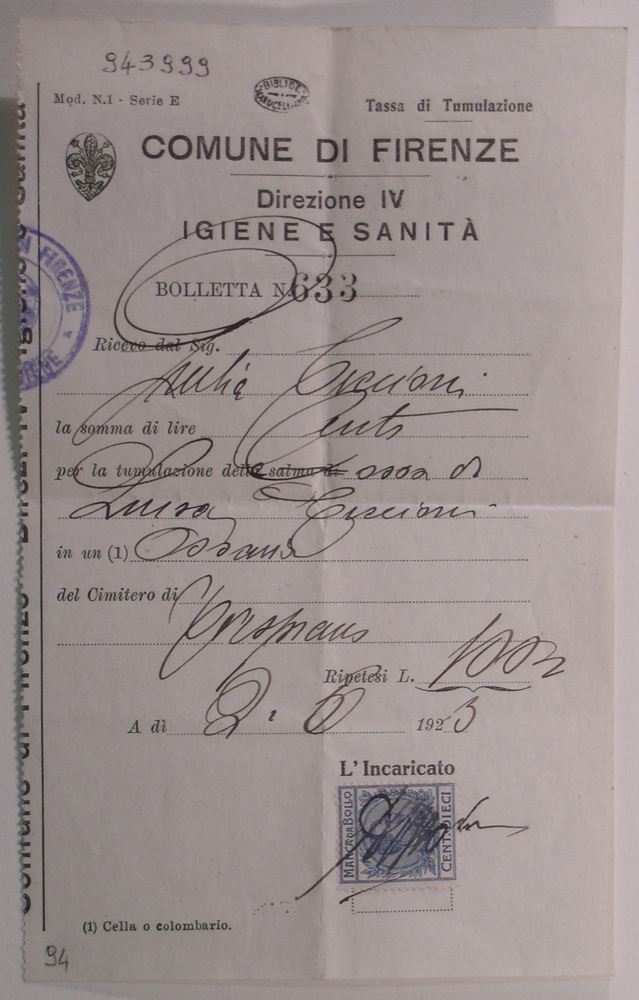 943999
BIBLIOTECA MARUCELLIANA
Mod. N.1 - Serie E
Tassa di Tumulazione
COMUNE DI FIRENZE
Direzione IV
IGIENE E SANITÀ
BOLLETTA N. 633
FIRENZE
Ricevo dal Sig.
la somma di lire Cento
per la tumulazione della salma di ossa di
Luisa
in un (1) Ossario
del Cimitero di
Trespiano
Ripetesi L. 100
A dì 2. 1923
L'Incaricato
MARCA DA BOLLO
CENT. DIECI
(1) Cella o colombario.
94